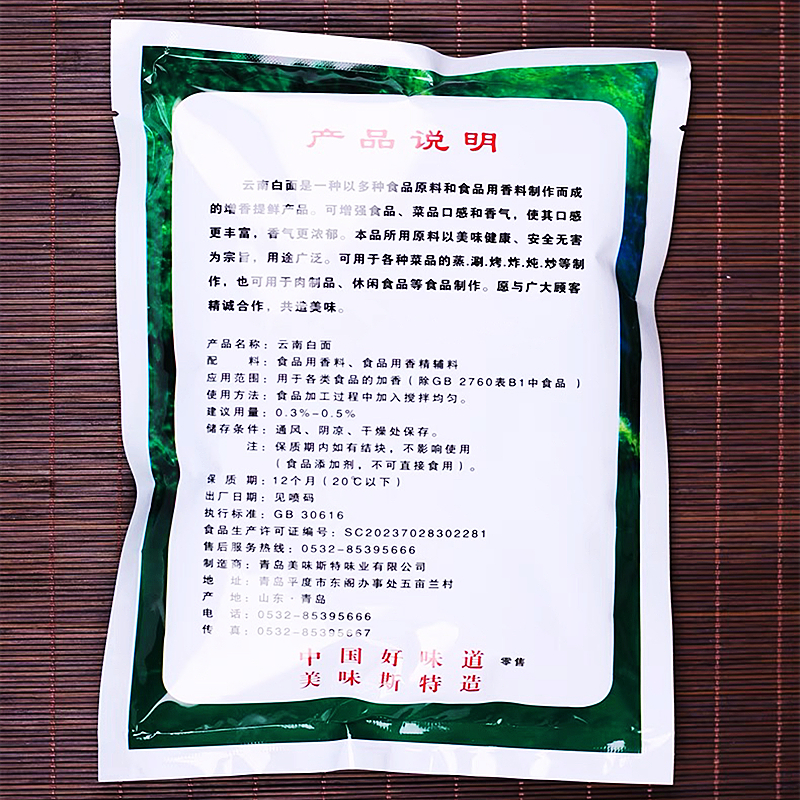 产品说明
云南白面是一种以多种食品原料和食品用香料制作而成
的增香提鲜产品。可增强食品、菜品口感和香气，使其口感
更丰富，香气更浓郁。本品所用原料以美味健康、安全无害
为宗旨，用途广泛。可用于各种菜品的蒸.涮.烤.炸.炖.炒等制
作，也可用于肉制品、休闲食品等食品制作。愿与广大顾客
精诚合作，共造美味。
产品名称：云南白面
配 料：食品用香料、食品用香精辅料
应用范围：用于各类食品的加香（除GB 2760表B1中食品 ）
使用方法：食品加工过程中加入搅拌均匀。
建议用量：0.3%-0.5%
储存条件：通风、阴凉、干燥处保存。
注：保质期内如有结块，不影响使用
（食品添加剂，不可直接食用）。
保 质 期：12个月（20℃以下）
出厂日期：见喷码
执行标准：GB 30616
食品生产许可证编号：SC20237028302281
售后服务热线：0532-85395666
制造商：青岛美味斯特味业有限公司
地 址：青岛平度市东阁办事处五亩兰村
产 地：山东·青岛
电 话：0532-85395666
传 真：0532-85395667
中国好味道 零售
美味斯特造